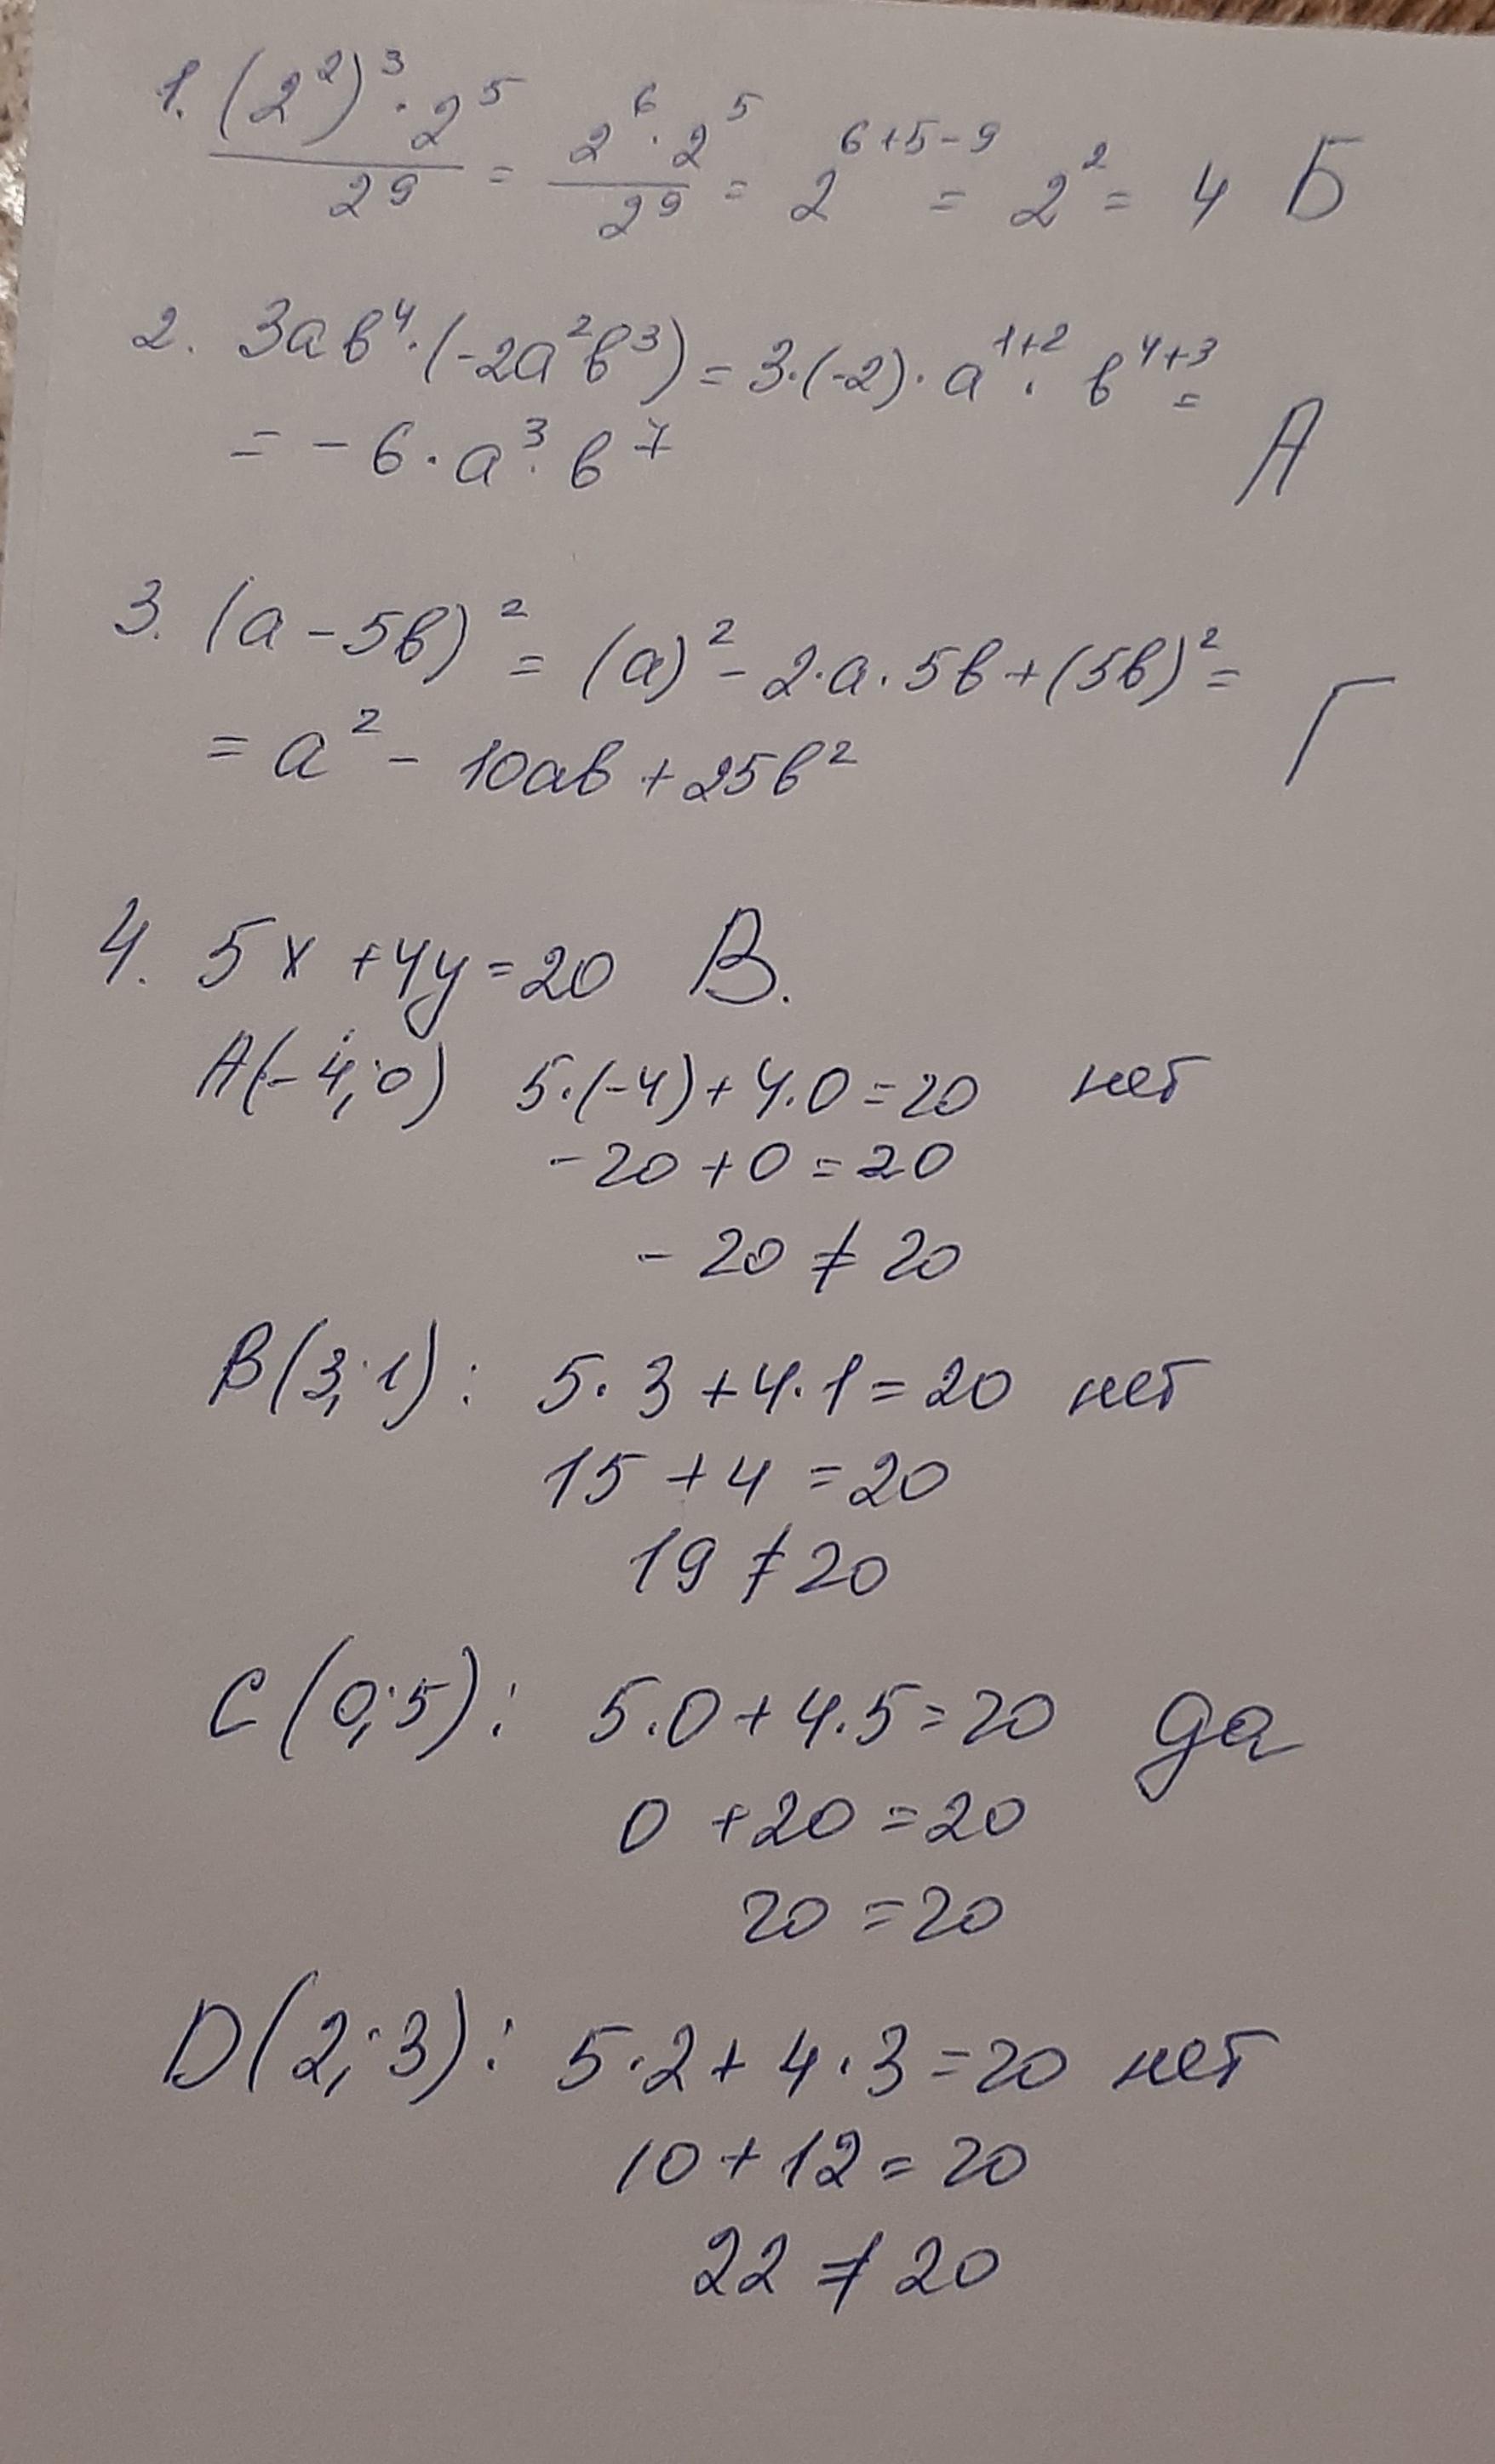 1. (2²)³ · 2⁵ / 2⁹ = 2⁶ · 2⁵ / 2⁹ = 2⁶⁺⁵⁻⁹ = 2² = 4 Б
2. 3ав⁴ · (-2а²в³) = 3·(-2)· а¹⁺² · в⁴⁺³ =
= - 6 · а³ · в⁷ А
3. (а - 5в)² = (а)² - 2·а·5в + (5в)² =
= а² - 10ав + 25в² Г
4. 5x + 4y = 20 В.
A(-4; 0) 5·(-4) + 4·0 = 20 нет
-20 + 0 = 20
- 20 ≠ 20
B(3; 1): 5·3 + 4·1 = 20 нет
15 + 4 = 20
19 ≠ 20
C(0; 5): 5·0 + 4·5 = 20 да
0 + 20 = 20
20 = 20
D(2; 3): 5·2 + 4·3 = 20 нет
10 + 12 = 20
22 ≠ 20